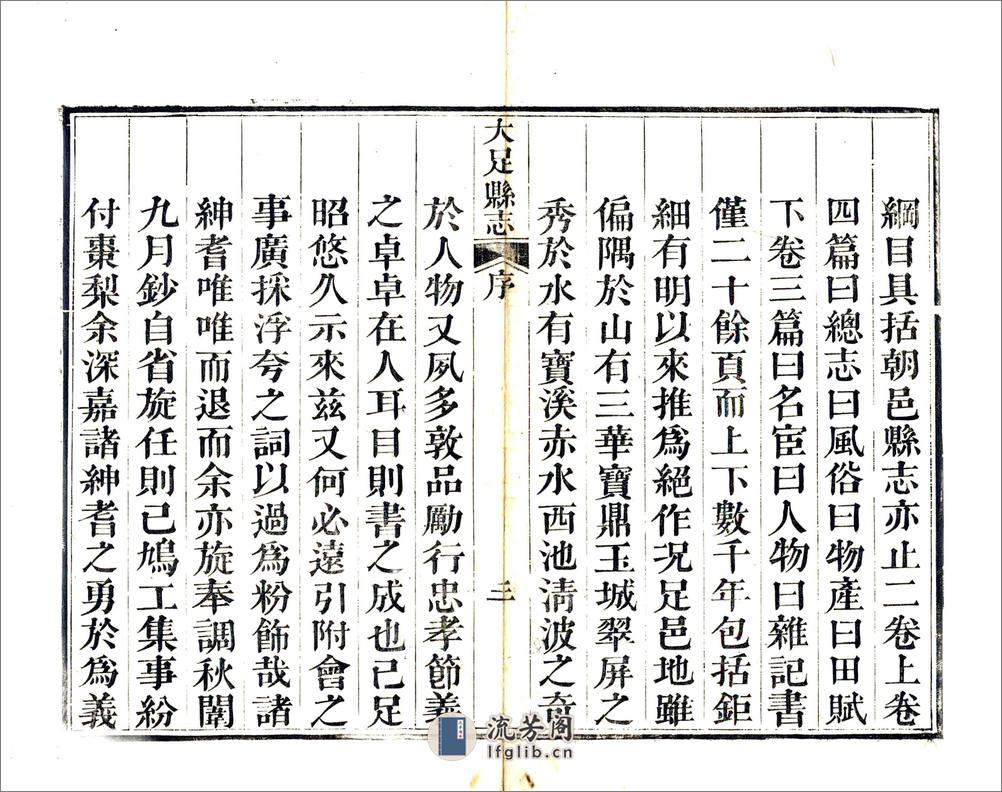 綱目具括朝邑縣志亦止二卷上卷
四篇曰總志曰風俗曰物產曰田賦
下卷三篇曰名宦曰人物曰雜記書
僅二十餘頁而上下數千年包括鉅
細有明以來推爲絕作况足邑地雖
偏隅於山有三華寶鼎玉城翠屏之
秀於水有寶溪赤水西池清波之奇
大足縣志
序
二
於人物又夙多敦品勵行忠孝節義
之卓卓在人耳目則書之成也已足
昭悠久示來兹又何必遠引附會之
事廣採浮夸之詞以過爲粉飾哉諸
紳耆唯唯而退而余亦旋奉調秋闈
九月鈔自省旋任則已鳩工集事紛
付棗梨余深嘉諸紳耆之勇於爲義
流芳阁
lfglib.cn